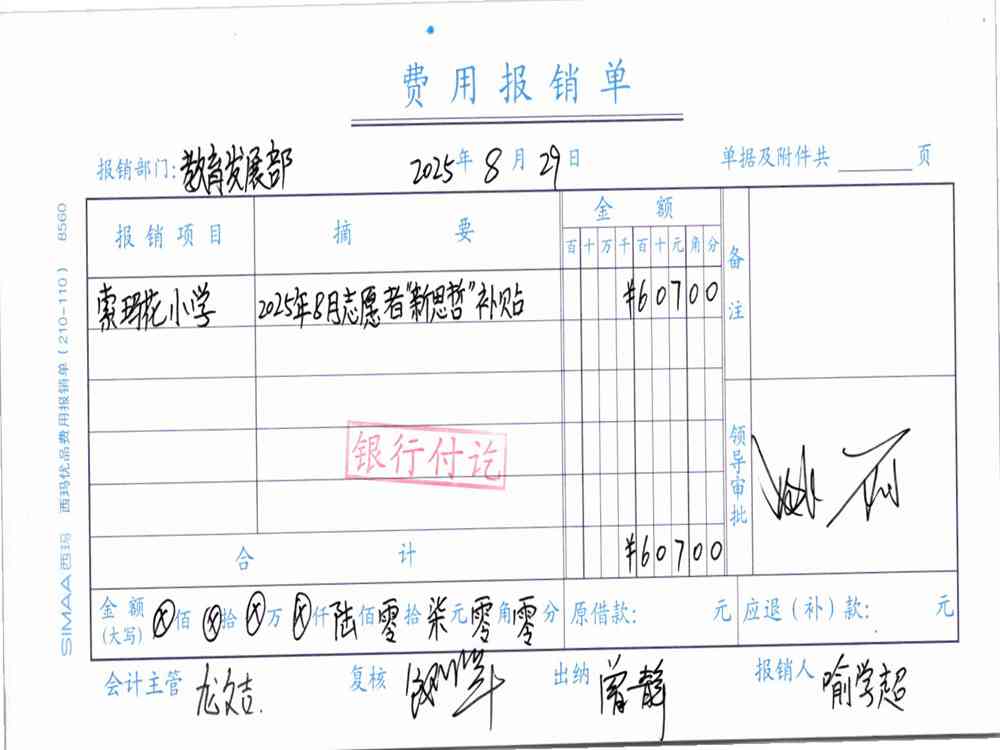 费用报销单
报销部门:教育发展部 2025年8月29日 单据及附件共 页
报销项目 摘要 金额 备注
百十万千百十元角分
索玛花小学 2025年8月志愿者"新思哲"补贴 ¥60700
银行付讫
领导审批
合计 ¥60700
金额(大写) ⊗佰⊗拾⊗万⊗仟陆佰零拾柒元零角零分 原借款: 元 应退(补)款: 元
会计主管 龙文吉. 复核 出纳 曾静 报销人 喻学超
SIMAA西玛 西玛优品费用报销单(210-110) 8560